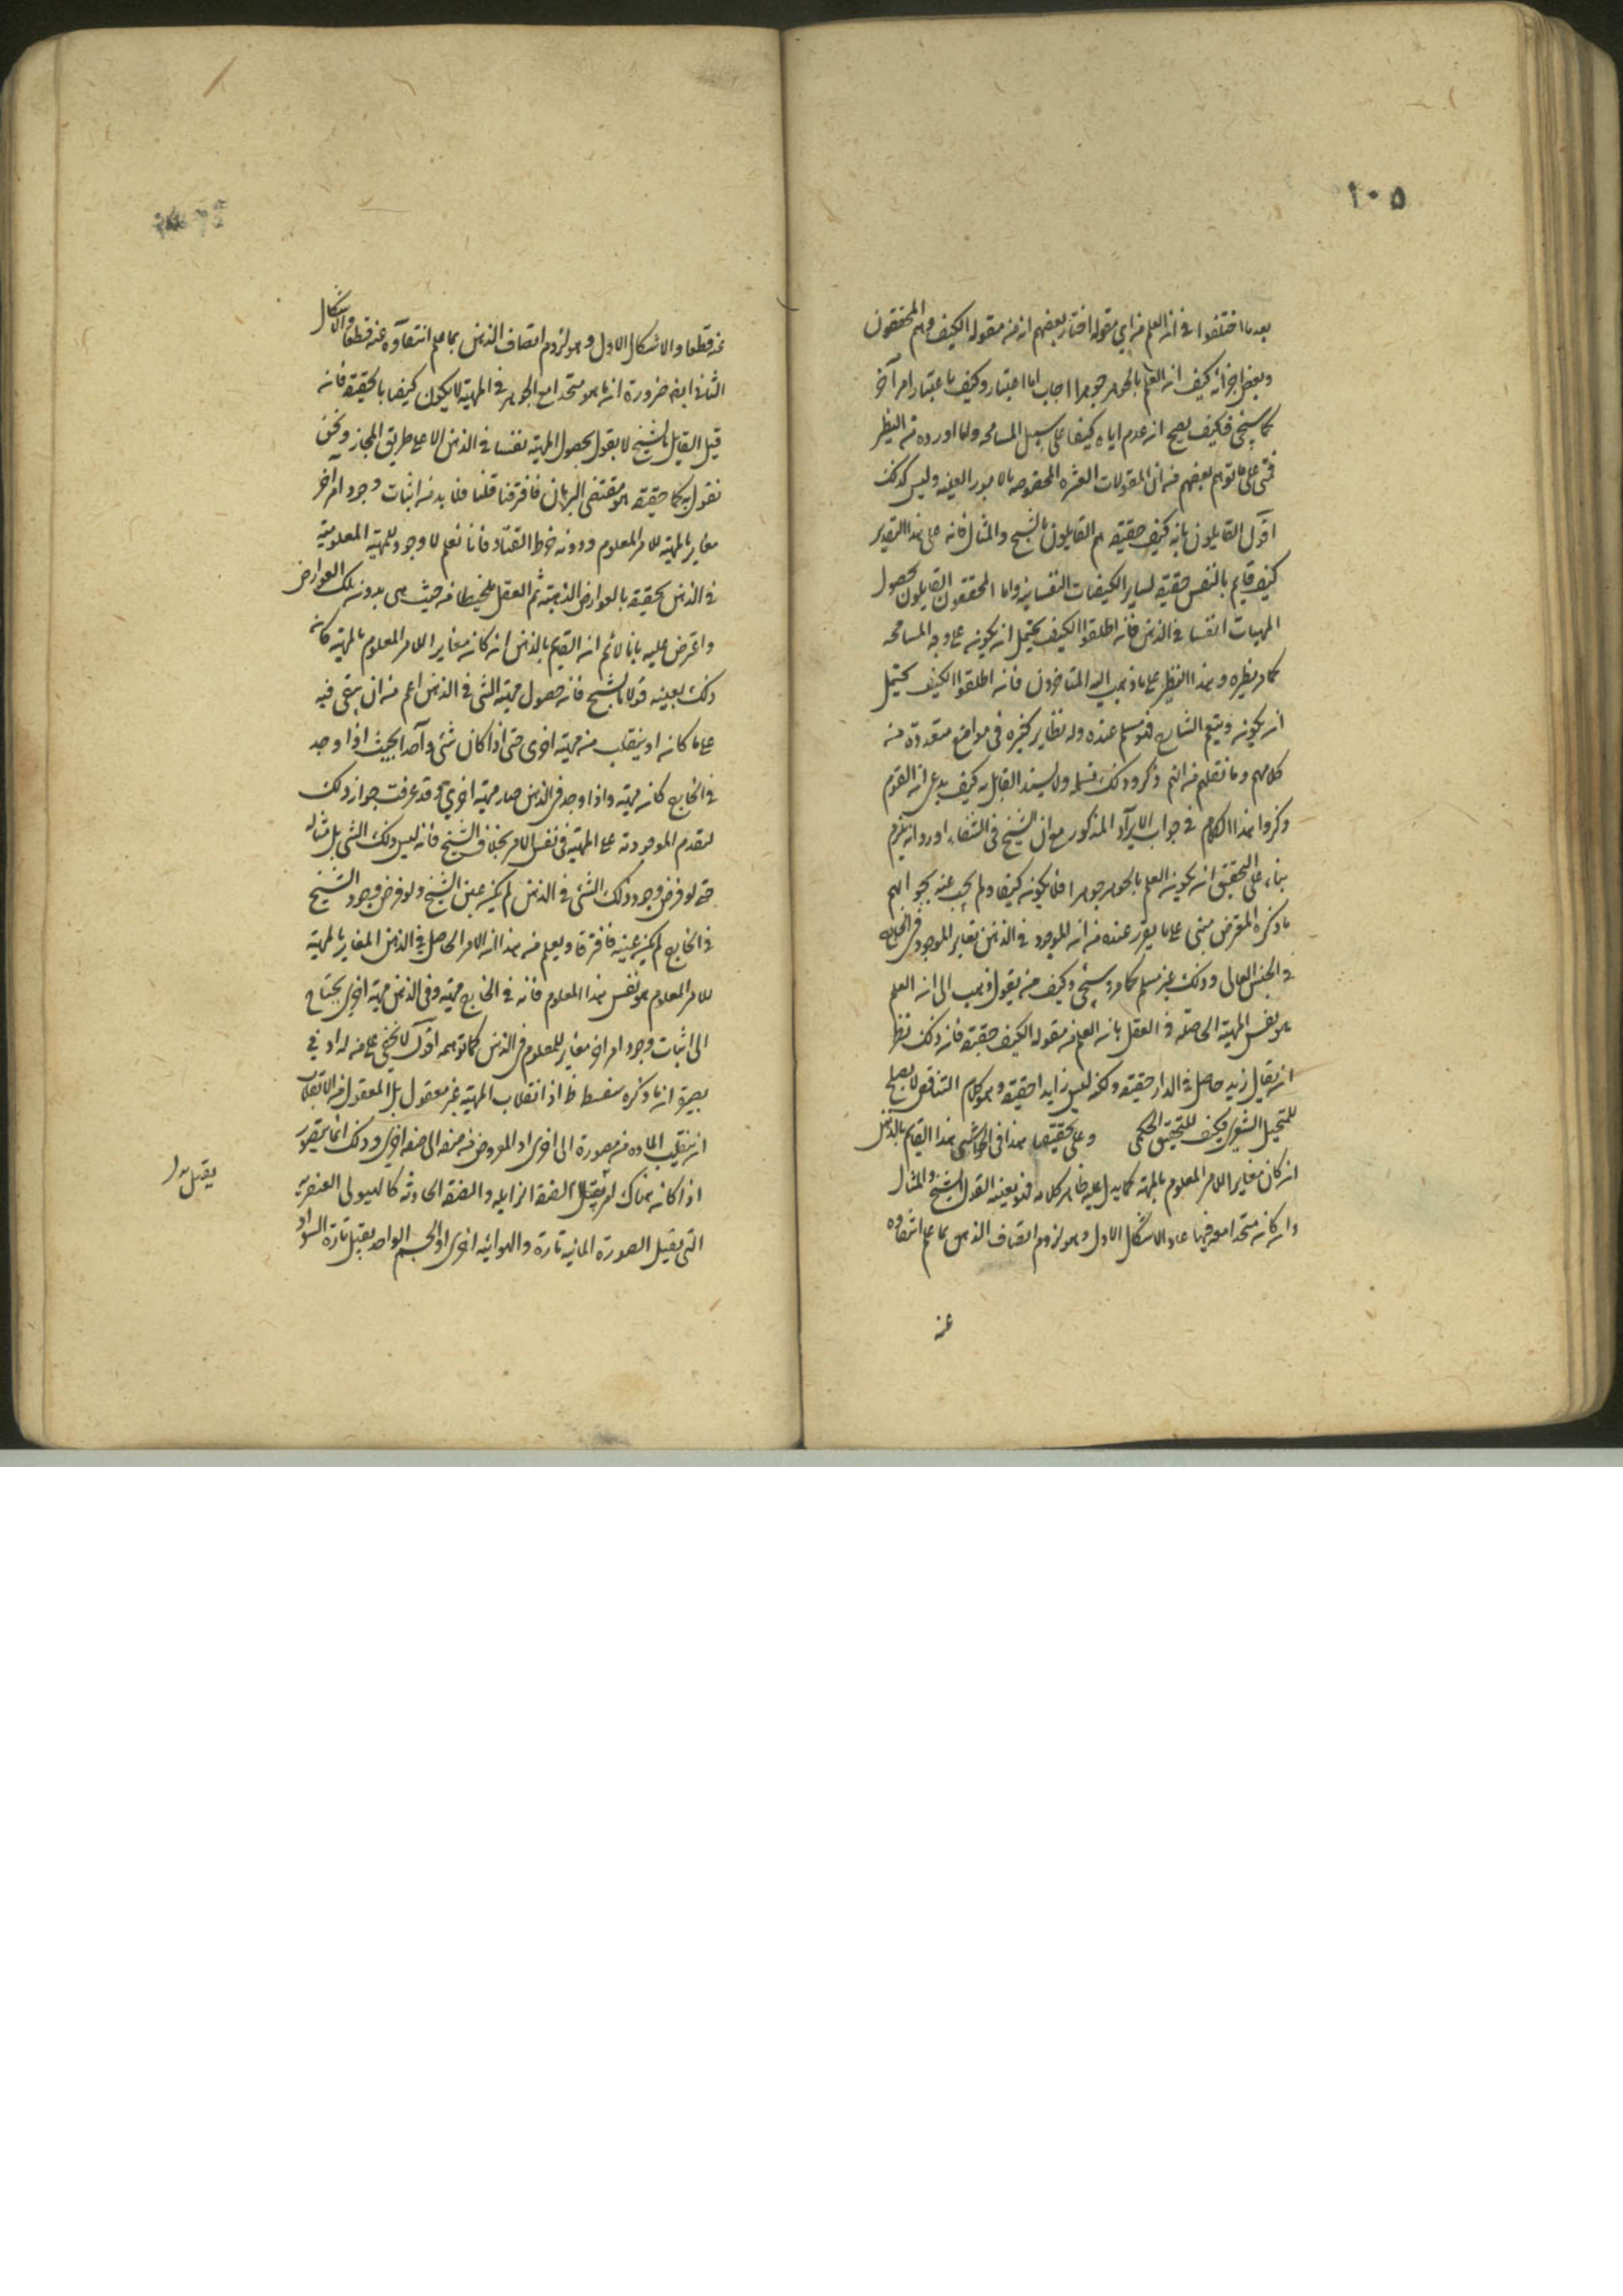 ١٠٥
بعد ما اختلفوا في ان العلم من اي مقوله اختار بعضهم انه من مقوله الكيف وهم المحققون
وبعض اخر انه كيف ان العلم بالجوهر جوهر اجاب اما اعتبار وكيف باعتبار امر آخر
كما سيجئ فكيف يصح ان عدم اياه كيفا على سبيل المسامحه واما اورده من النظر
فمبني على ما توهم بعضهم من ان المقولات العشره المخصوصه بالامور العينيه وليس كذلك
اقول القايلون بانه كيف حقيقه هم القايلون بالشبح والمثال فانه على هذا التقدير
كيف قايم بالنفس حقيقه كساير الكيفيات النفسانيه واما المحققون القايلون بحصول
المهيات انفسها في الذهن فانه اطلقوا الكيف يحتمل ان يكون على وجه المسامحه
كما مر نظيره وهذا النظر على ما ذهب اليه المتاخرون فانه اطلقوا الكيف يحتمل
ان يكون ويتبع الشايع فهو مسلم عنده وله نظاير كثيره في مواضع متعدده من
كلامهم وما نقلهم من انهم ذكروا ذلك نسلمه ولا يسند القايل به كيف يدعي ان القوم
ذكروا هذا الكلام في جواب الايراد المذكور مع ان الشيخ في الشفاء اورد انه يلزم
بناء على التحقيق ان يكون العلم بالجوهر جوهرا فلا يكون كيفا ولم يجب عنه بجوابهم
ما ذكره المعترض مبني على ما يقرر عنده من ان الموجود في الذهن يغاير الموجود في الخارج
في الجنس العالي وذلك غير مسلم كما مر وسيجئ وكيف من يقول وذهب الى ان العلم
هو نفس المهية الحاصله في العقل بانه العلم من مقوله الكيف حقيقة فانه ذلك نظير
ان يقال زيد حاصل في الدار حقيقه ولكنه ليس زايدا حقيقه وهو كلام التناقض لا يصلح
للتخيل الشعري فكيف للتحقيق الحكمي وعلى تحقيقه هذا في الحواشي هذا القايم بالذهن
ان كان مغايرا للامر المعلوم بالمهية كما يدل عليه ظاهر كلامه فهو بعينه القول بالشبح والمثال
وان كان متحدا معه فيها عاد الاشكال الاول وهو لزوم اتصاف الذهن بما علم انتفاوه
عنه
عنه قطعا والاشكال الاول وهو لزوم اتصاف الذهن بما علم انتفاوه عنه قطعا والاشكال
الثاني ايضا ضرورة ان ما هو متحد مع الجوهر في المهية لا يكون كيفا بالحقيقة فانه
قيل القايل بالشبح لا يقول بحصول المهية نفسها في الذهن الا على طريق المجاز ونحن
نقول بها حقيقه هو مقتضى البرهان فافترقنا قلنا فلا بد من اثبات وجود امر اخر
مغاير بالمهية للامر المعلوم ودونه خرط القتاد فانا نعلم لا وجود للمهية المعلومية
في الذهن بحقيقة بالعوارض الذهنية ثم العقل يلحظها من حيث هي بدون تلك العوارض
واعترض عليه بانا لا نم ان القايم بالذهن ان كان مغايرا للامر المعلوم بالمهية كان
ذلك بعينه قولا بالشبح فانه حصول مهية الشي في الذهن اعم من ان يبقى فيه
على ما كان او ينقلب من مهية اخرى حتى اذا كان شئ واحد بحيث اذا وجد
في الخارج كان مهية واذا وجد في الذهن صار مهية اخرى وقد عرفت جواز ذلك
لتقدم الموجوديه على المهية في نفس الامر بخلاف الشبح فانه ليس ذلك الشي بل مثاله
حتى لو فرض وجود ذلك الشئ في الذهن لم يكن عين الشبح ولو فرض وجود الشبح
في الخارج لم يكن عينه فافترقا ويعلم من هذا ان الامر الحاصل في الذهن المغاير بالمهية
للامر المعلوم هو نفس هذا المعلوم فانه في الخارج مهية وفي الذهن مهية اخرى يحتاج
الى اثبات وجود امر اخر مغاير للمعلوم في الذهن كما توهمه اقول لا يخفى على من له ادني
بصيرة ان ما ذكره سفسطة اذ انقلاب المهية غير معقول بل المعقول من الانقلاب
ان ينقلب الماده من صورة الى اخرى او الموضوع من صفه الى صفه اخرى وذلك انما يتصور
اذا كان هناك امر يقبل الصفة الزايله والصفة الحادثه كالهيولى العنصريه
التي يقبل الصورة المائيه تارة والهوائيه اخرى او الجسم الواحد يقبل تارة السواد